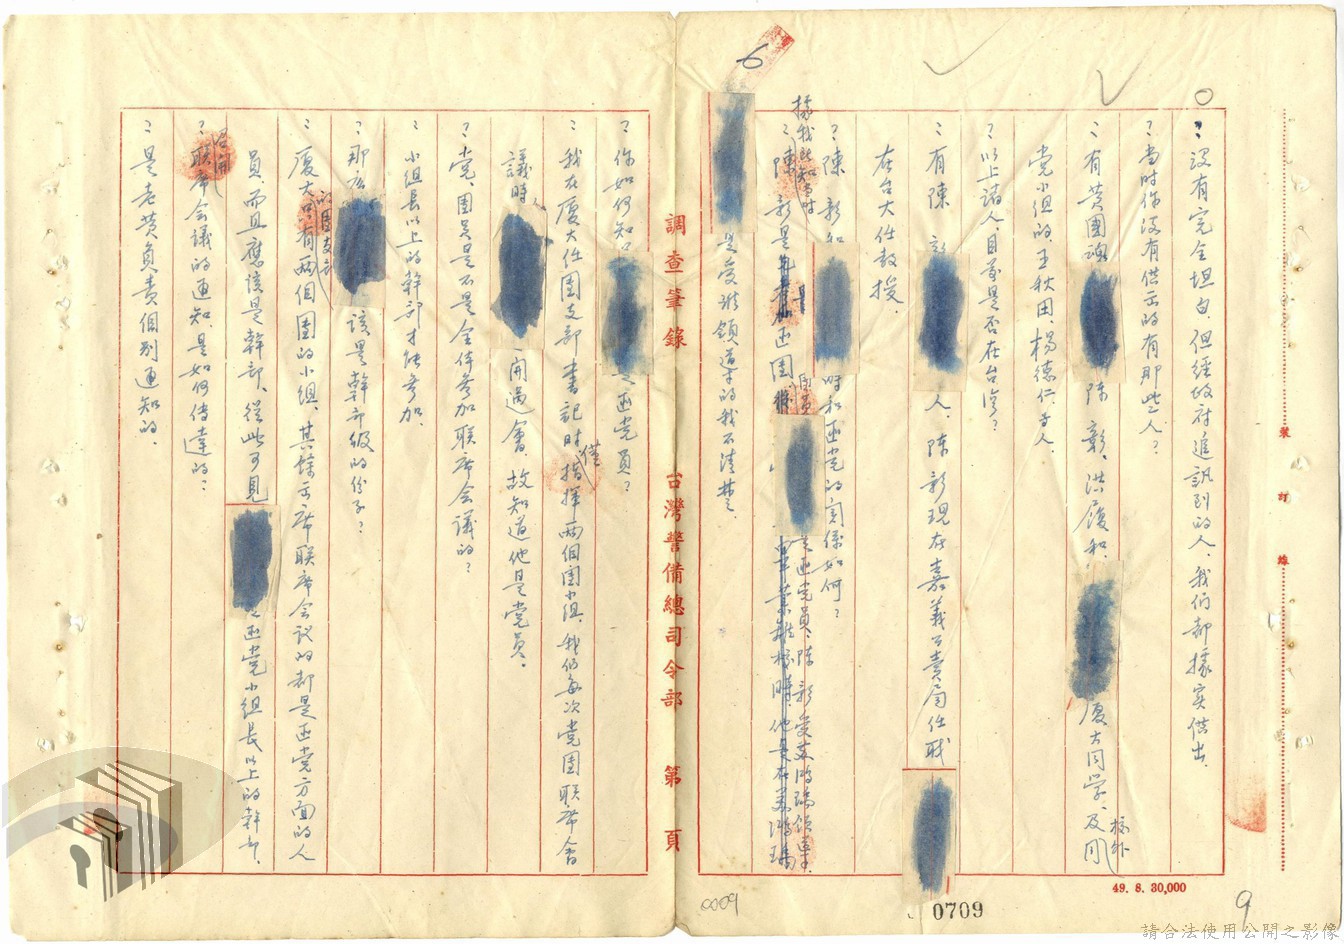 ：没有完全坦白，但經政府追訊到的人，我們都據实供出。
？当时你没有供出的有那些人？
：有黄國魂 陈彰、洪履和 厦大同学、及同校外
党小组的王秋田 楊德仁 人。
？以上諸人，目前是否在台湾？
：有陳 彰 人，陈彰現在嘉義公賣局任职
在台大任教授。
？陳 彰和 时和匪党的関係如何？
據我所知当时
：陳 彰是 匪團 員 匪党員、陈彰受 領導。
是受谁領導的我不清楚。
調查筆錄 台灣警備總司令部 第 頁
？你如何知 匪党員？
：我在厦大任團支部書記时僅指揮两個團小组，我们每次党團联席会
議时 開过會，故知道他是党員。
？党、團员是不是全体参加联席会議的？
：小组長以上的幹部才能参加。
？那麽 該是幹部級的份子？
：厦大的團支部只有两個團的小组，其餘出席联席会议的都是匪党方面的人
員，而且應該是幹部，從此可見 匪党小组長以上的幹部。
？召開联席会議的通知，是如何傳達的？
：是老黄負責個别通知的。
裝
訂
線
6
49. 8. 30,000
0709
0009
9
請合法使用公開之影像